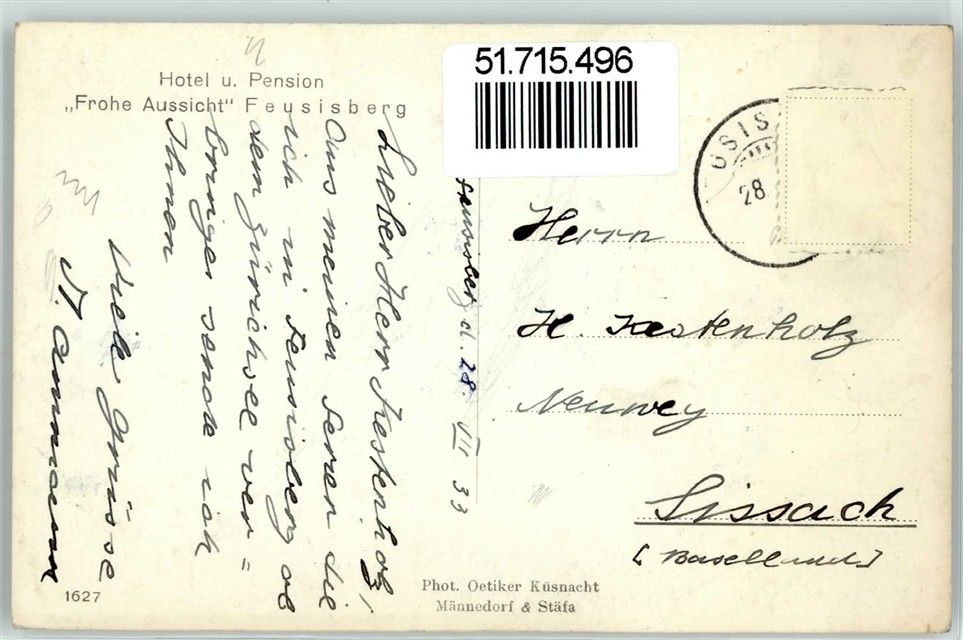 51.715.496
Hotel u. Pension
„Frohe Aussicht“ Feusisberg
Feusisberg d. 28. VII 33
Lieber Herr Kestenholz,
Aus meinen Ferien die
ich in Feusisberg ob
dem Zürichsee ver=
bringe, sende ich
Ihnen
Viele Grüsse
Ammann
USIS
28
Herrn
H. Kestenholz
Neuweg
Sissach
[Baselland]
Phot. Oetiker Küsnacht
Männedorf & Stäfa
1627